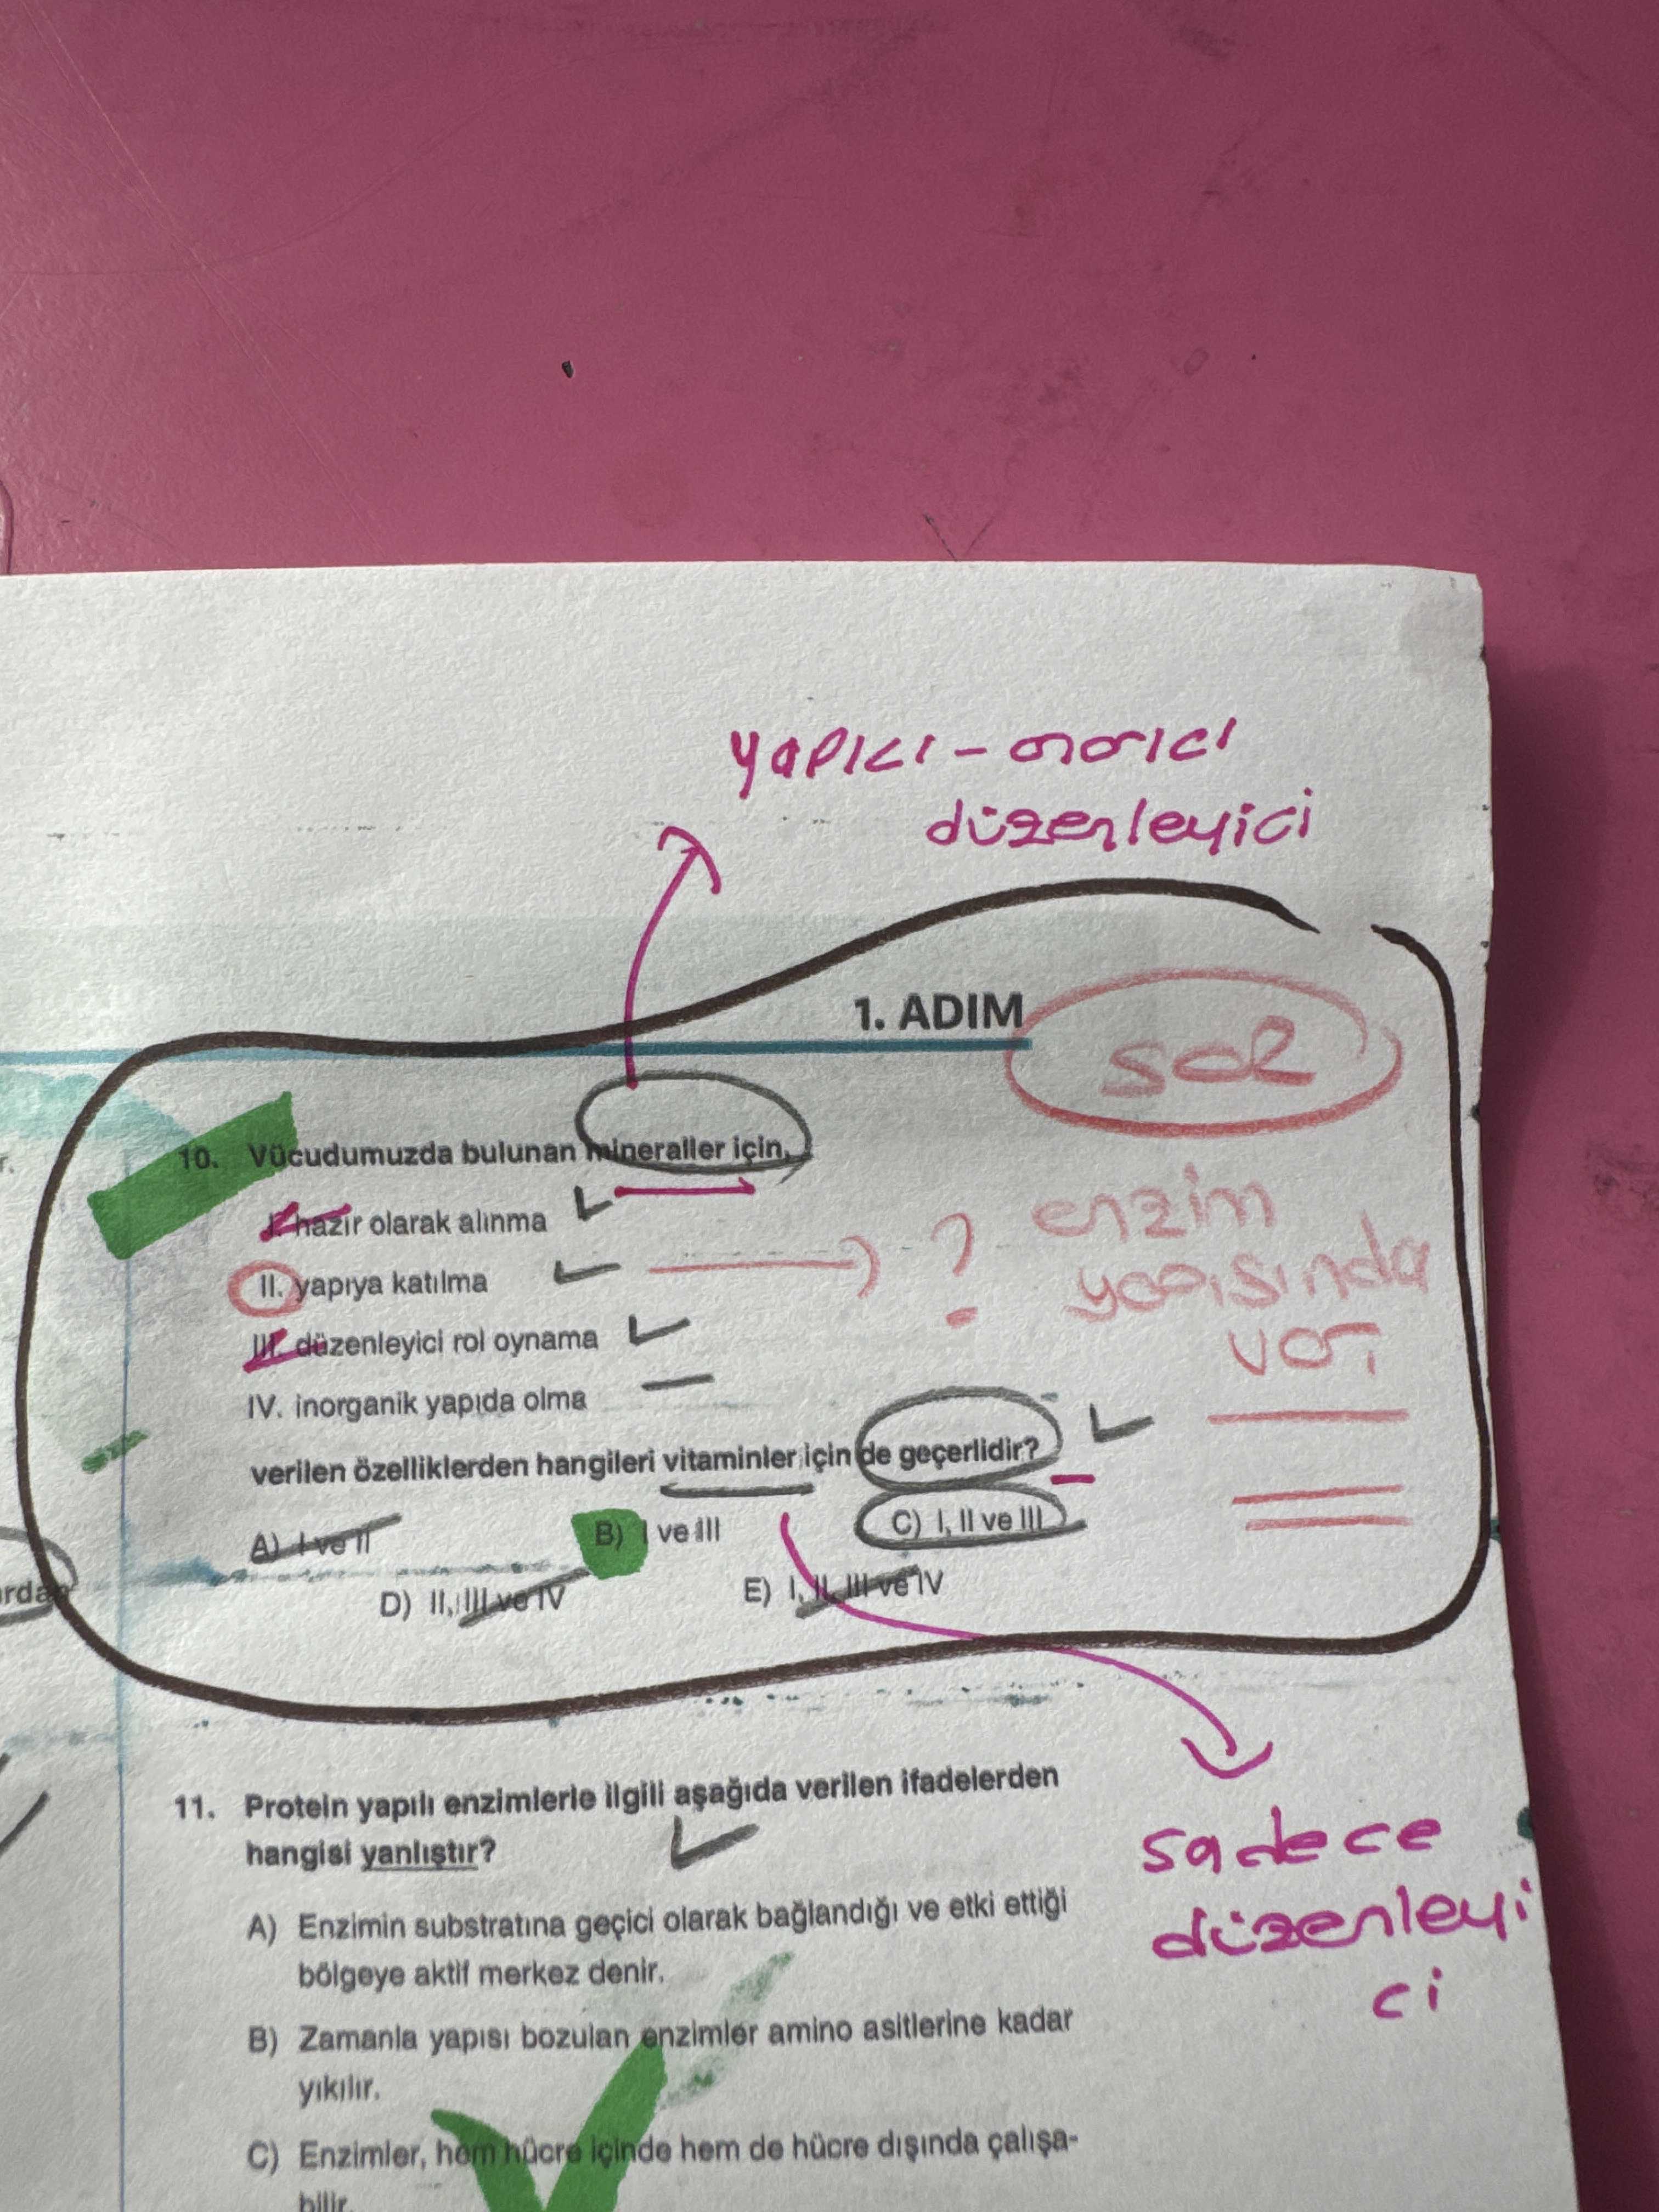 yapıcı - onarıcı
düzenleyici
1. ADIM
sol
10. Vücudumuzda bulunan mineraller için,
I. hazır olarak alınma
II. yapıya katılma
?
enzim
yapısında
var
III. düzenleyici rol oynama
IV. inorganik yapıda olma
verilen özelliklerden hangileri vitaminler için de geçerlidir?
A) I ve II
B) I ve III
C) I, II ve III
D) II, III ve IV
E) I, II, III ve IV
11. Protein yapılı enzimlerle ilgili aşağıda verilen ifadelerden
hangisi yanlıştır?
sadece
düzenleyi
ci
A) Enzimin substratına geçici olarak bağlandığı ve etki ettiği
bölgeye aktif merkez denir.
B) Zamanla yapısı bozulan enzimler amino asitlerine kadar
yıkılır.
C) Enzimler, hem hücre içinde hem de hücre dışında çalışa-
bilir.